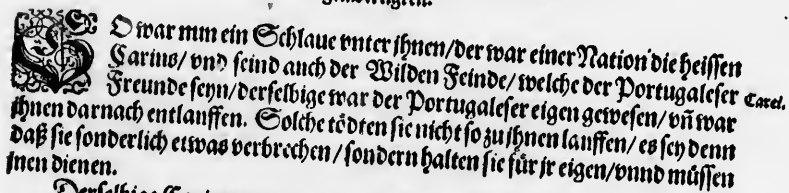 SO war nun ein Schlaue vnter jhnen/der war einer Nation die heissen
Carius/vnd seind auch der Wilden Feinde/welche der Portugaleser
Freunde seyn/derselbige war der Portugaleser eigen gewesen/vñ war
jhnen darnach entlauffen. Solche tödten sie nicht so zu jhnen lauffen/es sey denn
daß sie sonderlich etwas verbrechen/sondern halten sie für jr eigen/vnnd müssen
jnen dienen.
Derselbige